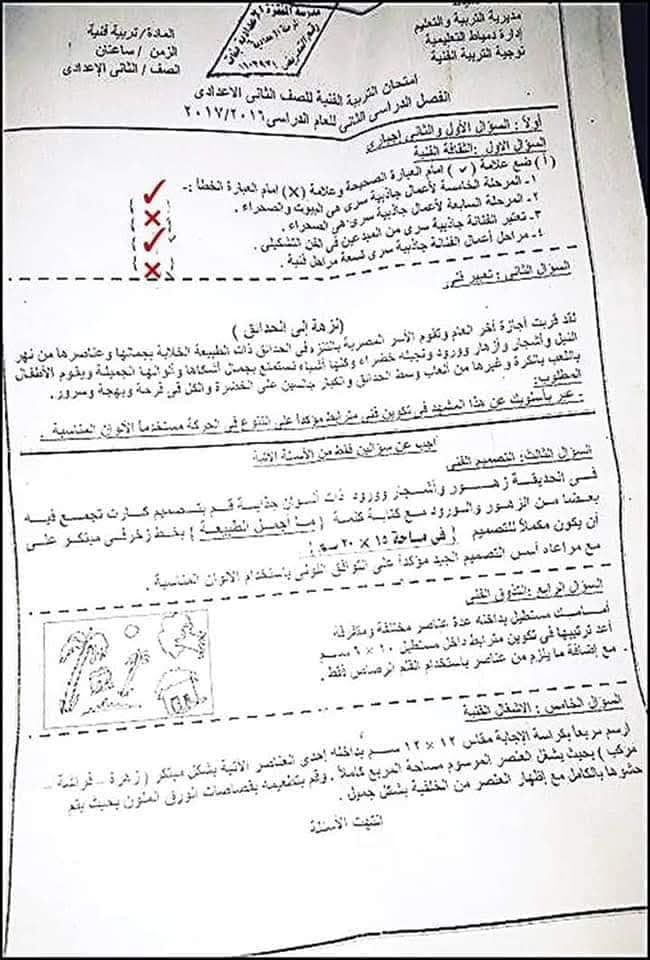 مديرية التربية والتعليم
إدارة دمياط التعليمية
توجية التربية الفنية
المادة/ تربية فنية
الزمن / ساعتان
الصف / الثانى الإعدادى
امتحان التربية الفنية للصف الثانى الاعدادى
الفصل الدراسى الثانى للعام الدراسى ٢٠١٦/٢٠١٧
أولاً : السؤال الأول والثانى إجبارى
السؤال الأول : الثقافة الفنية
( أ ) ضع علامة ( ✓ ) أمام العبارة الصحيحة وعلامة (×) أمام العبارة الخطأ :-
١- المرحلة الخامسة لأعمال جاذبية سرى هى البيوت والصحراء .
٢- المرحلة السابعة لأعمال جاذبية سرى هى الصحراء .
٣- تعتبر الفنانة جاذبية سرى من المبدعين فى الفن التشكيلى .
٤- مراحل أعمال الفنانة جاذبية سرى تسعة مراحل فنية .
السؤال الثانى : تعبير فنى
(نزهة إلى الحدائق )
لقد قربت أجازة أخر العام وتقوم الأسر المصرية بالتنزه فى الحدائق ذات الطبيعة الخلابة بجمالها وعناصرها من نهر
النيل وأشجار وأزهار وورود ونجيله خضراء وكلها أشياء نستمتع بجمال أشكالها وألوانها الجميلة ويقوم الأطفال
باللعب بالكرة وغيرها من ألعاب وسط الحدائق والكبار جالسين على الخضرة والكل فى فرحة وبهجة وسرور .
المطلوب:
- عبر بأسلوبك عن هذا المشهد فى تكوين فنى مترابط مؤكداً على التنوع فى الحركة مستخدماً الألوان المناسبة .
أجب عن سؤالين فقط من الأسئلة الآتية
السؤال الثالث: التصميم الفنى
فى الحديقة زهور وأشجار وورود ذات ألوان جذابة قم بتصميم كارت تجمع فيه
بعضا من الزهور والورود مع كتابة كلمة ( ما أجمل الطبيعة ) بخط زخرفى مبتكر على
أن يكون مكملاً للتصميم ( فى مساحة ١٥ × ٢٠ سم )
مع مراعاه أسس التصميم الجيد مؤكداً على التوافق اللونى باستخدام الألوان المناسبة .
السؤال الرابع :التذوق الفنى
أمامك مستطيل بداخله عدة عناصر مختلفة ومتفرقة
أعد ترتيبها فى تكوين مترابط داخل مستطيل ١٠ × ٦ سم
مع إضافة ما يلزم من عناصر باستخدام القلم الرصاص فقط .
السؤال الخامس : الأشغال الفنية
ارسم مربعاً بكراسة الإجابة مقاس ١٢ × ١٢ سم بداخله إحدى العناصر الآتية بشكل مبتكر ( زهرة – فراشة –
مركب ) بحيث يشغل العنصر المرسوم مساحة المربع كاملاً . وقم بتطعيمه بقصاصات الورق الملون بحيث يتم
حشوها بالكامل مع إظهار العنصر من الخلفية بشكل جميل .
انتهت الأسئلة